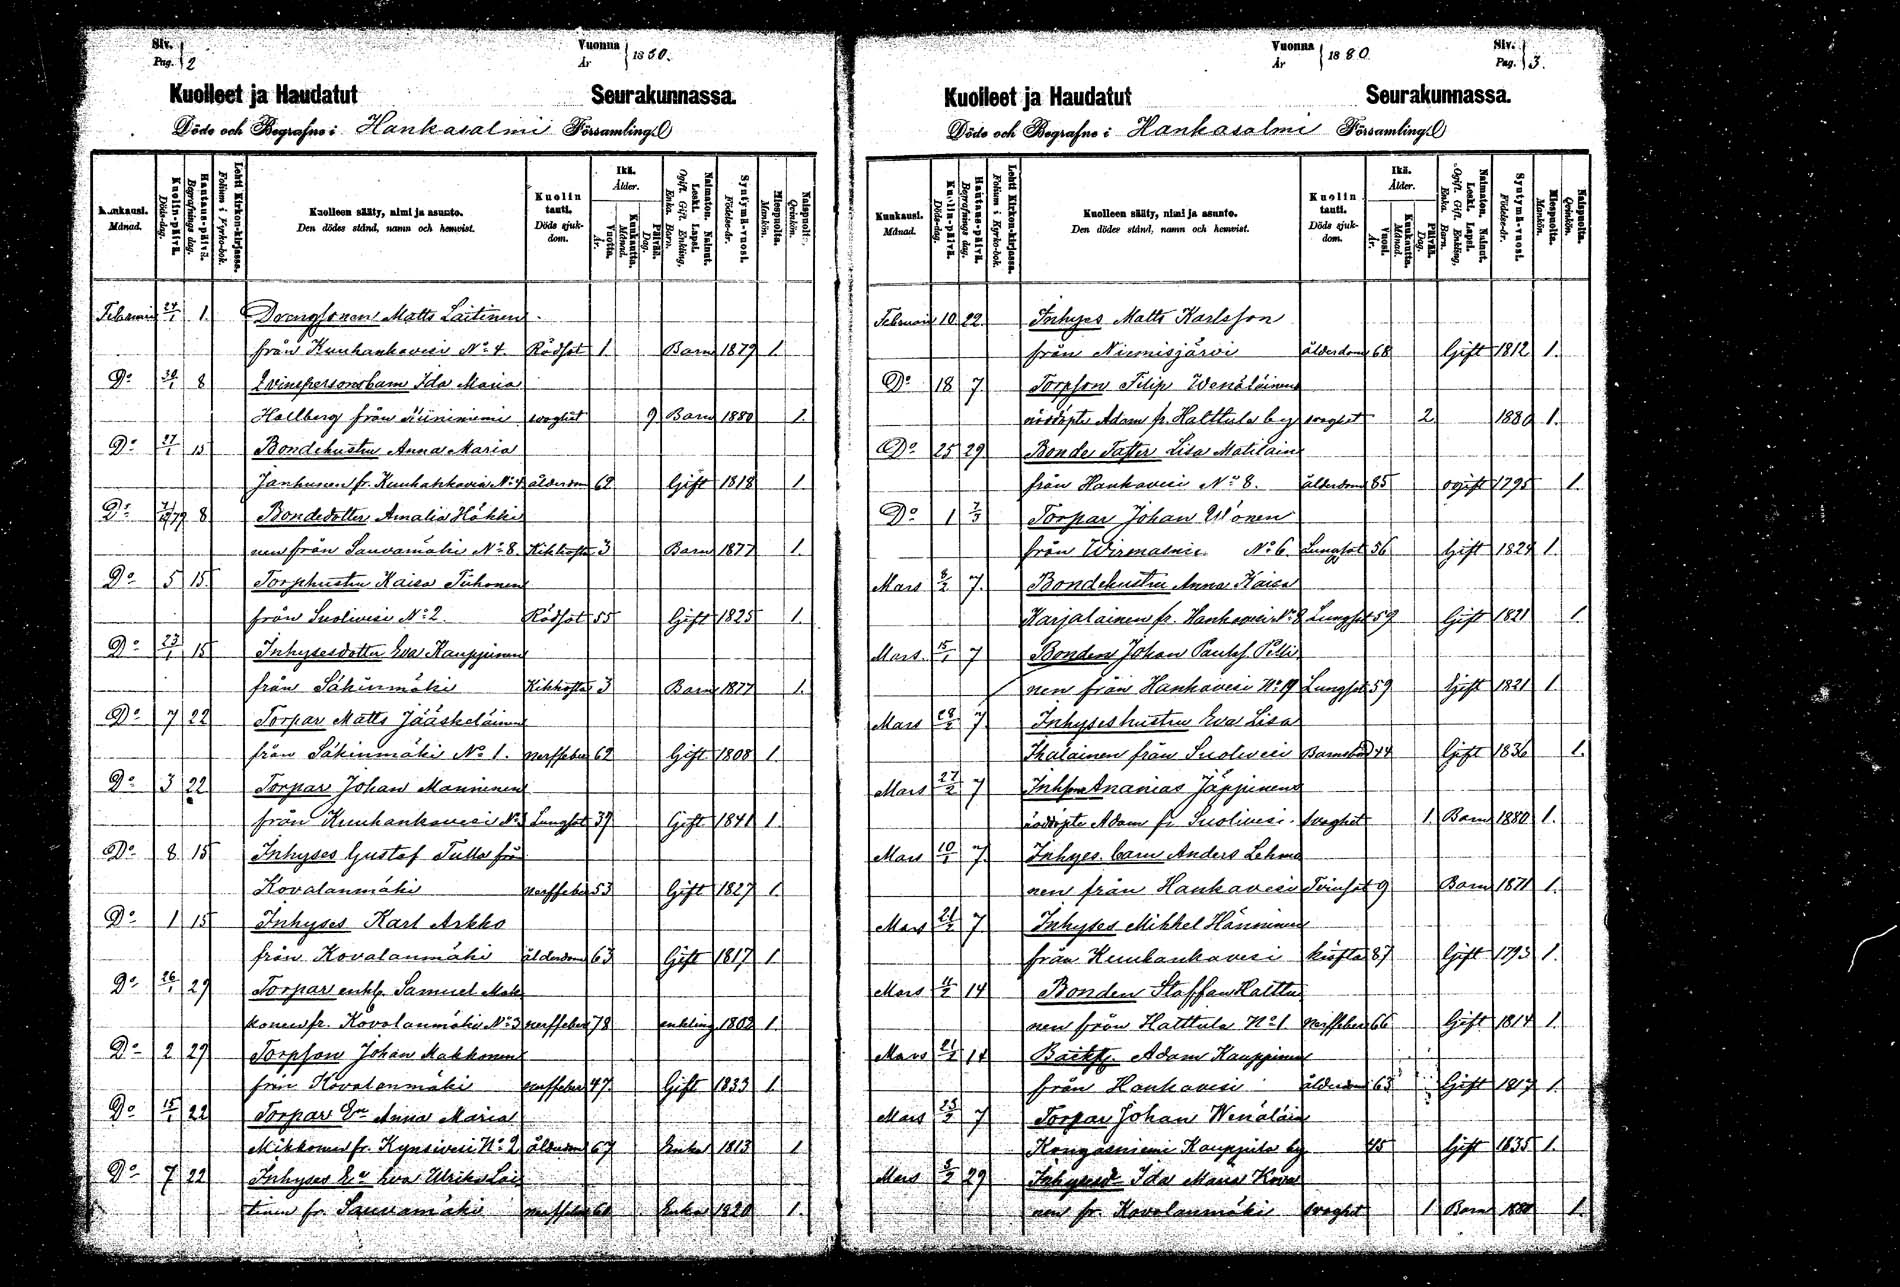 Siv. Vuonna
Pag. 2 År 1880.
Kuolleet ja Haudatut Seurakunnassa.
Döde och Begrafne i Hankasalmi Församling
Kuukausi. Månad. Kuolin-päivä. Döds-dag. Hautaus-päivä. Begrafnings dag. Lehti Kirkon-kirjassa. Folium i Kyrko-bok. Kuolleen sääty, nimi ja asunto. Den dödes stånd, namn och hemvist. Kuolin tauti. Döds sjukdom. Ikä. Ålder. Vuotta. År. Kuukautta. Månad. Päivää. Dag. Naimaton. Nainut. Leski. Lapsi. Ogift. Gift. Enkling. Enka. Barn. Syntymä-vuosi. Födelse-år. Miespuolia. Mankön. Naispuolia. Qvinkön.
Februari 24/1 1. Drengsonen Matts Laitinen
från Kuuhankavesi No 4. Rödsot 1 Barn 1879 1.
Do 30/1 8 Qvinspersonsbarn Ida Maria
Hallberg från Niininiemi svaghet 9 Barn 1880 1.
Do 27/1 15 Bondehustru Anna Maria
Janhunen fr. Kuuhankavesi No 4 ålderdom 62 Gift 1818 1
Do 8 Bondedotter Amalia Hökki
nen från Sauvamäki No 8. Kikhosta 3 Barn 1877 1.
Do 5 15 Torphustru Kaisa Tiihonen
från Suolivesi No 2. Rödsot 55 Gift 1825 1.
Do 23/1 15 Inhysesdotter Eva Kauppinen
från Säkinmäki Kikhosta 3 Barn 1877 1.
Do 7 22 Torpar Matts Jääskeläinen
från Säkinmäki No 1. nerffeber 62 Gift 1808 1
Do 3 22 Torpar Johan Manninen
från Kuuhankavesi No 3 Lungsot 39 Gift 1841 1
Do 8 15 Inhyses Gustaf Tulla från
Kovalanmäki nerffeber 53 Gift 1827 1.
Do 1 15 Inhyses Karl Arkko
från Kovalanmäki ålderdom 63 Gift 1817 1
Do 26/1 29 Torpar enkl. Samuel Mak
konen fr. Kovalanmäki No 3 nerffeber 78 enkling 1802 1
Do 2 29 Torpson Johan Makkonen
från Kovalanmäki nerffeber 47 Gift 1833 1
Do 15/1 22 Torpar En Anna Maria
Mikkonen fr. Kynsivesi No 2 ålderdom 67 Enka 1813 1
Do 7 22 Inhyses Ea hva Ulrika Lai
tinen fr. Sauvamäki nerffeber 60 Enka 1820 1.
Vuonna Siv.
År 1880 Pag. 3.
Kuolleet ja Haudatut Seurakunnassa.
Döde och Begrafne i Hankasalmi Församling
Kuukausi. Månad. Kuolin-päivä. Döds-dag. Hautaus-päivä. Begrafnings dag. Lehti Kirkon-kirjassa. Folium i Kyrko-bok. Kuolleen sääty, nimi ja asunto. Den dödes stånd, namn och hemvist. Kuolin tauti. Döds sjukdom. Ikä. Ålder. Vuosi. År. Kuukautta. Månad. Päivää. Dag. Naimaton. Nainut. Leski. Lapsi. Ogift. Gift. Enkling. Enka. Barn. Syntymä-vuosi. Födelse-år. Miespuolia. Mankön. Naispuolia. Qvinkön.
Februari 10 22 Inhyses Matts Karlsson
från Niemisjärvi ålderdom 68 Gift 1812 1.
Do 18 7 Torpson Filip Wenäläinens
nöddöpte Adam fr. Halttula by svaghet 2 1880 1.
Do 25 29 Bonde Lisa Matilain
från Hankavesi No 8. ålderdom 85 ogift 1795 1.
Do 1 7/3 Torpar Johan
från No 6. Lungsot 56 Gift 1824 1.
Mars 8/2 7. Bondehustru Anna Kaisa
Karjalainen fr. Hankavesi No 8 Lungsot 59 Gift 1821 1.
Mars 15/1 7 Bonden Johan Paulsf. Pelli
nen från Hankavesi No 19 Lungsot 59 Gift 1821 1.
Mars 28/2 7 Inhyseshustru Eva Lisa
Ikäläinen från Suolivesi Barnsbörd 44 Gift 1836 1.
Mars 27/2 7 Inhsons Ananias Jäppinens
nöddöpte Adam fr Suolivesi. Svaghet 1. Barn 1880 1.
Mars 10/1 7. Inhyes. barn Anders Lehmo
nen från Hankavesi Tvinsot 9 Barn 1871 1.
Mars 21/2 7 Inhyses Mikkel Hänninen
från Kuuhankavesi 87 Gift 1793 1.
Mars 11/2 14 Bonden Staffan Halttu
nen från Halttula No 1 nerffeber 66 Gift 1814 1.
Mars 21/2 14 Adam Kauppinen
från Hankavesi ålderdom 63 Gift 1817 1.
Mars 23/2 7 Torpar Johan Wenäläin
Kangasniemi Kauppila by 45 Gift 1835 1.
Mars 3/2 29 Inhysesd Ida Maria Kova
nen fr. Kovalanmäki svaghet 1 Barn 1880 1.